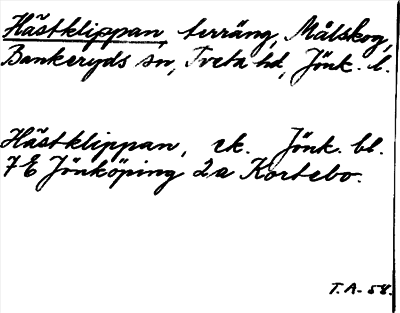 Hästklippan, terräng, Målskog,
Bankeryds sn, Tveta hd, Jönk. l.
Hästklippan, ek. Jönk. bl.
7E Jönköping 2a Kortebo.
T.A. 58.